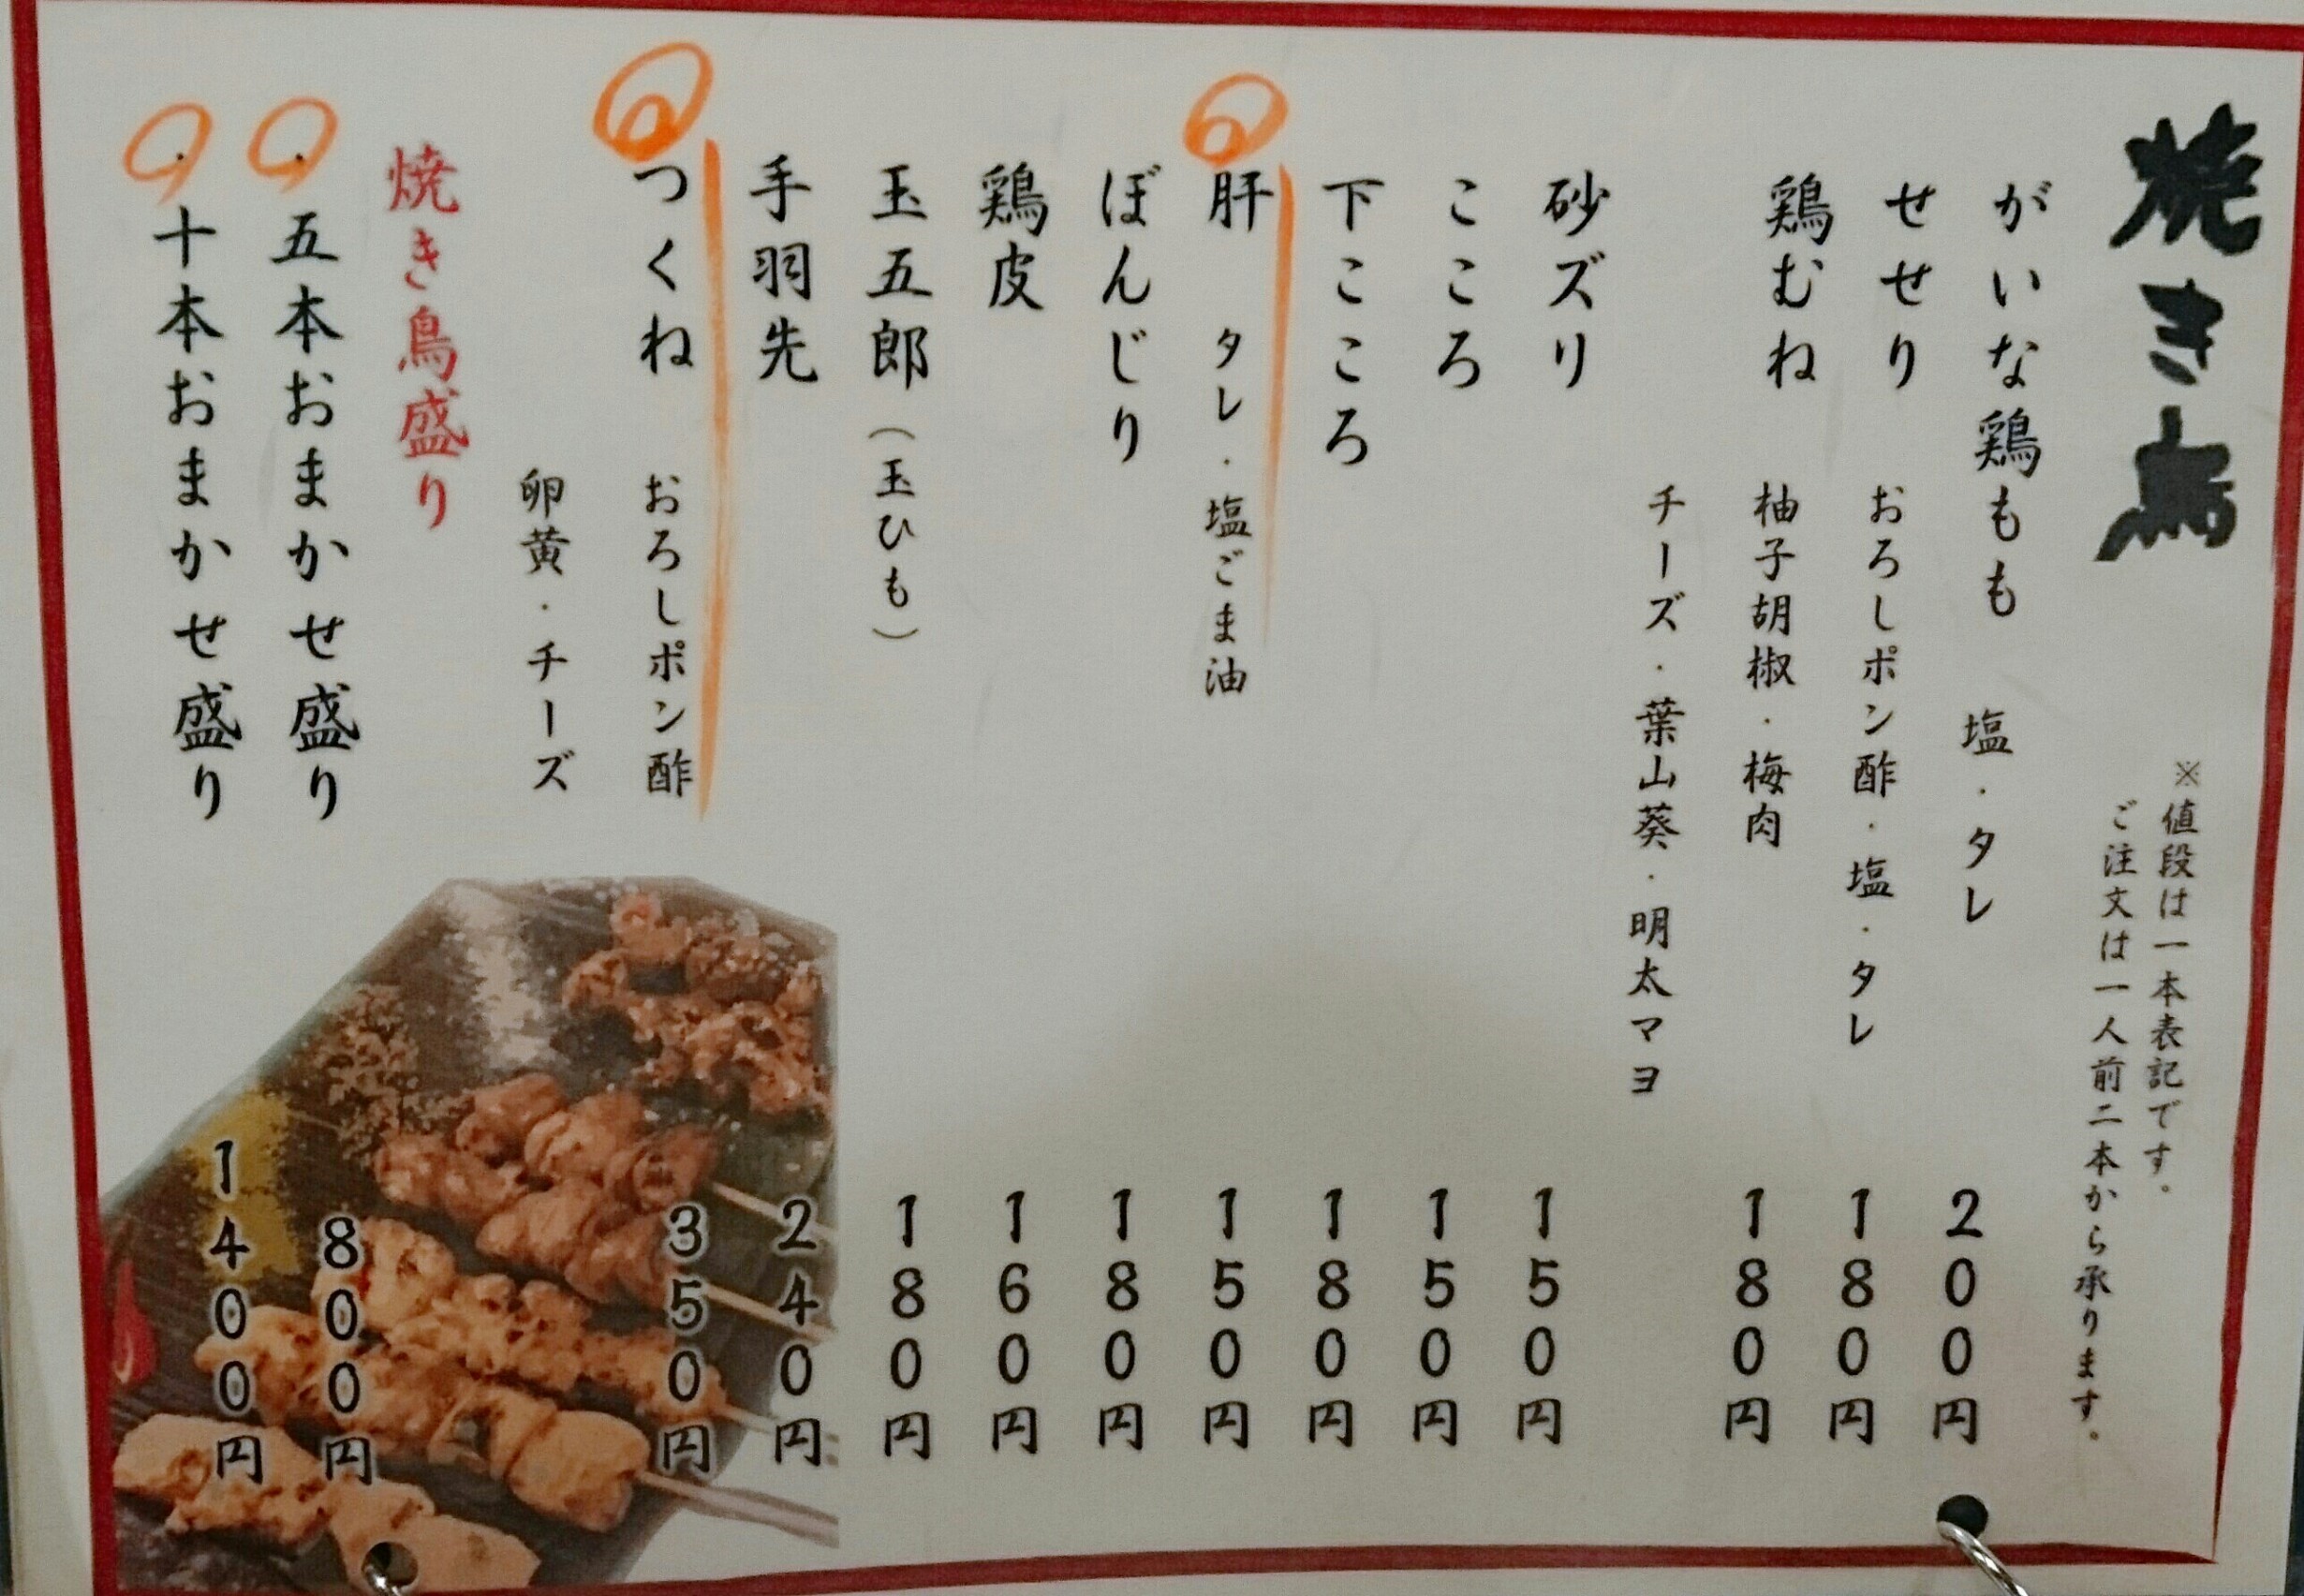 焼き鳥
※値段は一本表記です。
ご注文は一人前二本から承ります。
がいな鶏もも 塩・タレ 200円
せせり おろしポン酢・塩・タレ 180円
鶏むね 柚子胡椒・梅肉 180円
チーズ・葉山葵・明太マヨ
砂ズリ 150円
こころ 150円
下こころ 180円
肝 タレ・塩ごま油 150円
ぼんじり 180円
鶏皮 160円
玉五郎(玉ひも) 180円
手羽先 240円
つくね おろしポン酢 350円
卵黄・チーズ
焼き鳥盛り
・五本おまかせ盛り 800円
・十本おまかせ盛り 1400円